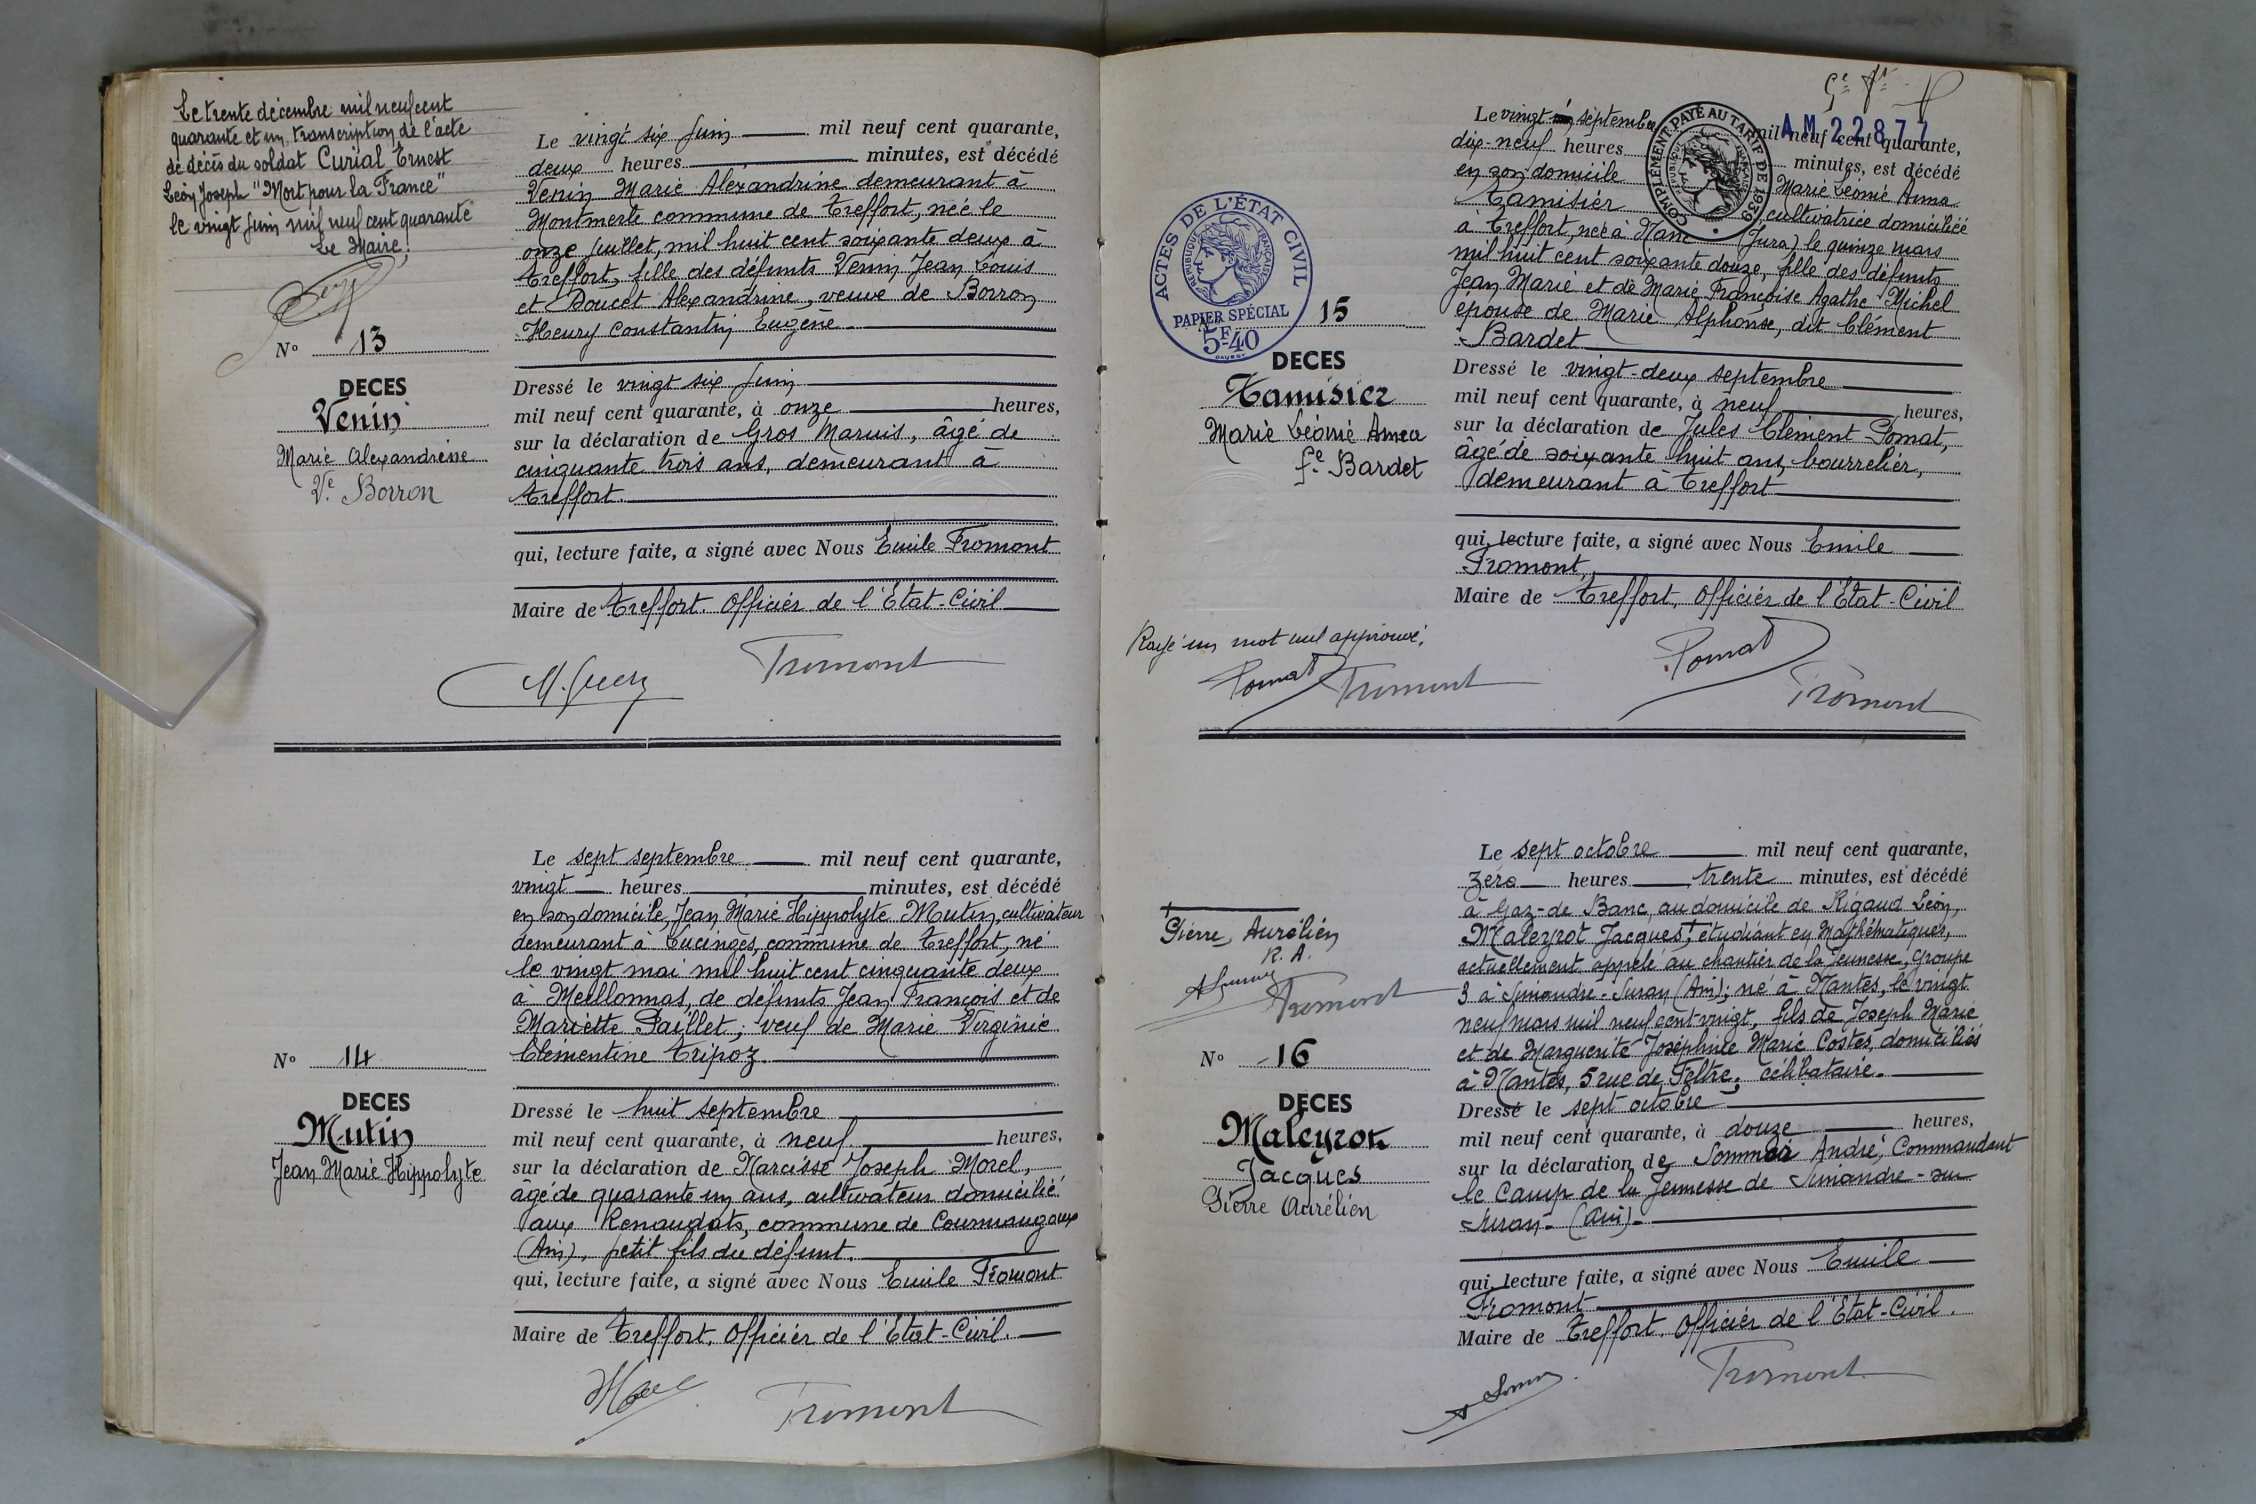 Le trente décembre mil neuf cent
quarante et un, transcription de l'acte
de décès du soldat Curial Ernest
Léon Joseph "Mort pour la France"
le vingt juin mil neuf cent quarante
Le Maire,
N° 13
DECES
Venin
Marie Alexandrine
Ve Borron
Le vingt six Juin mil neuf cent quarante,
deux heures minutes, est décédé
Venin Marie Alexandrine demeurant à
Montmerle commune de Treffort, née le
onze juillet, mil huit cent soixante deux à
Treffort, fille des défunts Venin Jean Louis
et Doucet Alexandrine, veuve de Borron
Heury Constantin Eugène.
Dressé le vingt six Juin
mil neuf cent quarante, à onze heures,
sur la déclaration de Gros Marius, âgé de
cinquante trois ans, demeurant à
Treffort.
qui, lecture faite, a signé avec Nous Emile Fromont
Maire de Treffort. Officier de l'Etat-Civil
Fromont
N° 14
DECES
Mutin
Jean Marie Hippolyte
Le sept septembre mil neuf cent quarante,
vingt heures minutes, est décédé
en son domicile, Jean Marie Hippolyte Mutin, cultivateur
demeurant à Lucinges, commune de Treffort, né
le vingt mai mil huit cent cinquante deux
à Meillonnas, de défunts Jean François et de
Mariette Paillet; veuf de Marie Virginie
Clémentine Tripoz.
Dressé le huit septembre
mil neuf cent quarante, à neuf heures,
sur la déclaration de Narcisse Joseph Morel,
âgé de quarante un ans, cultivateur domicilié
aux Renaudats, commune de Courmangoux
(Ain), petit fils du défunt.
qui, lecture faite, a signé avec Nous Emile Fromont
Maire de Treffort. Officier de l'Etat-Civil.
Fromont
AM 22877
COMPLÉMENT PAYÉ AU TARIF DE 1939
ACTES DE L'ÉTAT CIVIL
RÉPUBLIQUE FRANÇAISE
PAPIER SPÉCIAL
5F40
15
DECES
Tamisier
Marie Léonie Anna
fe Bardet
Le vingt septembre mil neuf cent quarante,
dix-neuf heures minutes, est décédé
en son domicile Marie Léonie Anna
Tamisier cultivatrice domiciliée
à Treffort, née à (Jura) le quinze mars
mil huit cent soixante douze, fille des défunts
Jean Marie et de Marie Françoise Agathe Michel
épouse de Marie Alphonse, dit Clément
Bardet
Dressé le vingt-deux septembre
mil neuf cent quarante, à neuf heures,
sur la déclaration de Jules Clément Pomat,
âgé de soixante huit ans, bourrelier,
demeurant à Treffort
qui, lecture faite, a signé avec Nous Emile
Fromont,
Maire de Treffort, Officier de l'Etat-Civil
Rayé un mot nul approuvé.
Pomat Fromont
Pomat
Fromont
Pierre, Aurélien
R. A.
Fromont
N° 16
DECES
Maleyrot
Jacques
Pierre Aurélien
Le sept octobre mil neuf cent quarante,
zéro heures trente minutes, est décédé
à Gaz-de Banc, au domicile de Rigaud Léon,
Maleyrot Jacques, étudiant en Mathématiques,
actuellement appelé au chantier de la Jeunesse, Groupe
3 à Simandre-Suran (Ain); né à Nantes, le vingt
neuf mars mil neuf cent vingt, fils de Joseph Marie
et de Marguerite Joséphine Marie Costes, domiciliés
à Nantes, 5 rue de Feltre; célibataire.
Dressé le sept octobre
mil neuf cent quarante, à douze heures,
sur la déclaration de Sommer André, Commandant
le Camp de la Jeunesse de Simandre-sur
Suran- (Ain).
qui, lecture faite, a signé avec Nous Emile
Fromont
Maire de Treffort. Officier de l'Etat-Civil.
Fromont